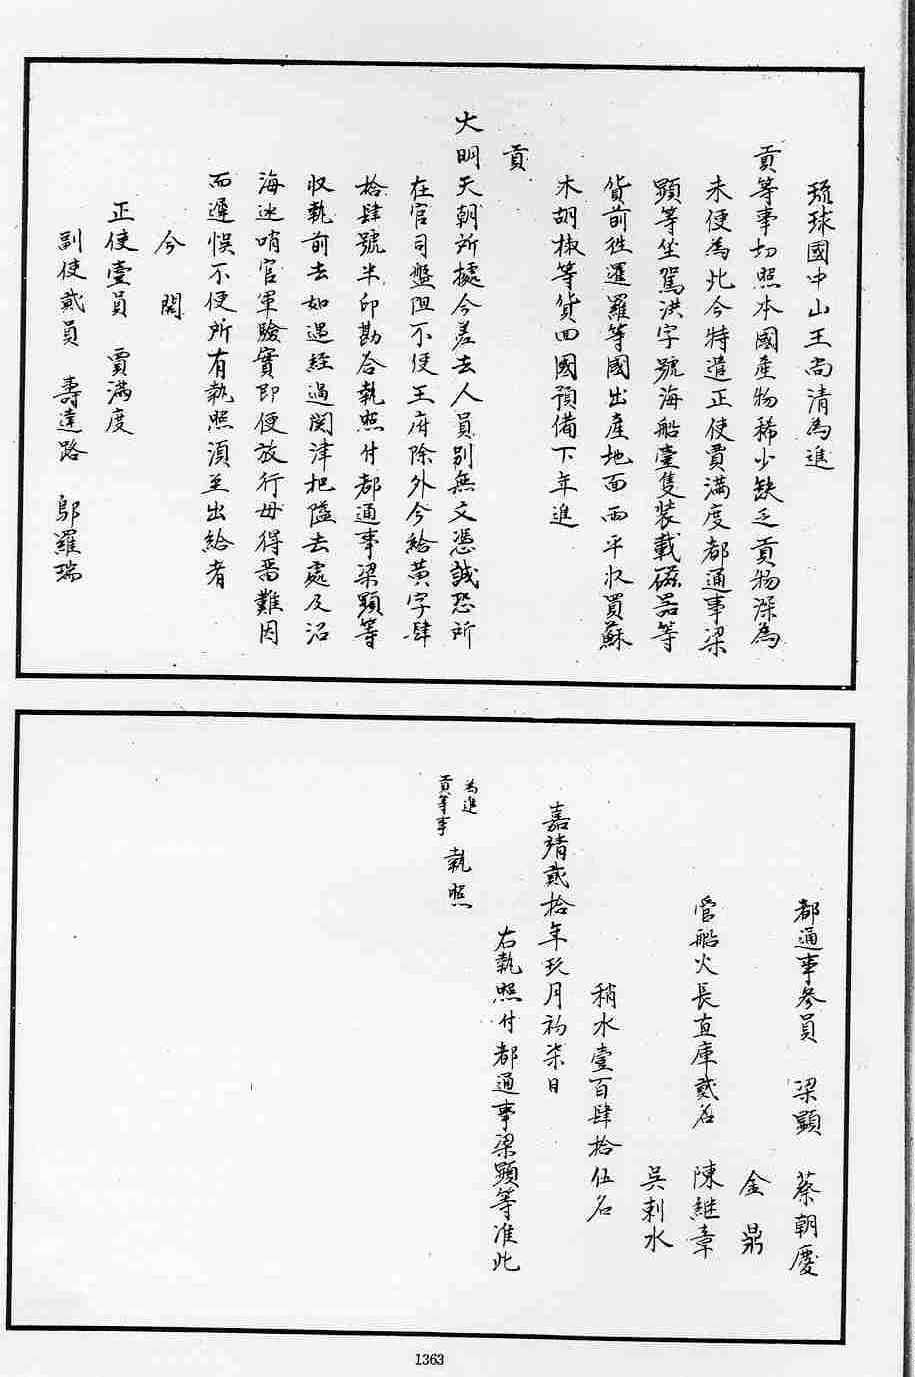 琉球國中山王尚清為進
貢等事切照本國產物稀少缺乏貢物深為
未便為此今特遣正使賈滿度都通事梁
顯等坐駕洪字號海船壹隻裝載磁器等
貨前徃暹羅等國出產地面兩平收買蘇
木胡椒等貨囬國預備下年進
貢
大明天朝所據今差去人員別無文憑誠恐所
在官司盤阻不便王府除外今給黃字肆
拾肆號半印勘合執照付都通事梁顯等
収執前去如遇經過関津把隘去處及沿
海巡哨官軍驗實即便放行毋得畱難因
而遲悞不便所有執照湏至出給者
今開
正使壹員 賈滿度
副使貳員 壽達路 鄔羅瑞
都通事叄員 梁顯 蔡朝慶
金鼎
管船火長直庫貳名 陳継章
吳剌水
稍水壹百肆拾伍名
嘉靖貳拾年玖月初柒日
右執照付都通事梁顯等准此
為進
貢等事
執照
1363